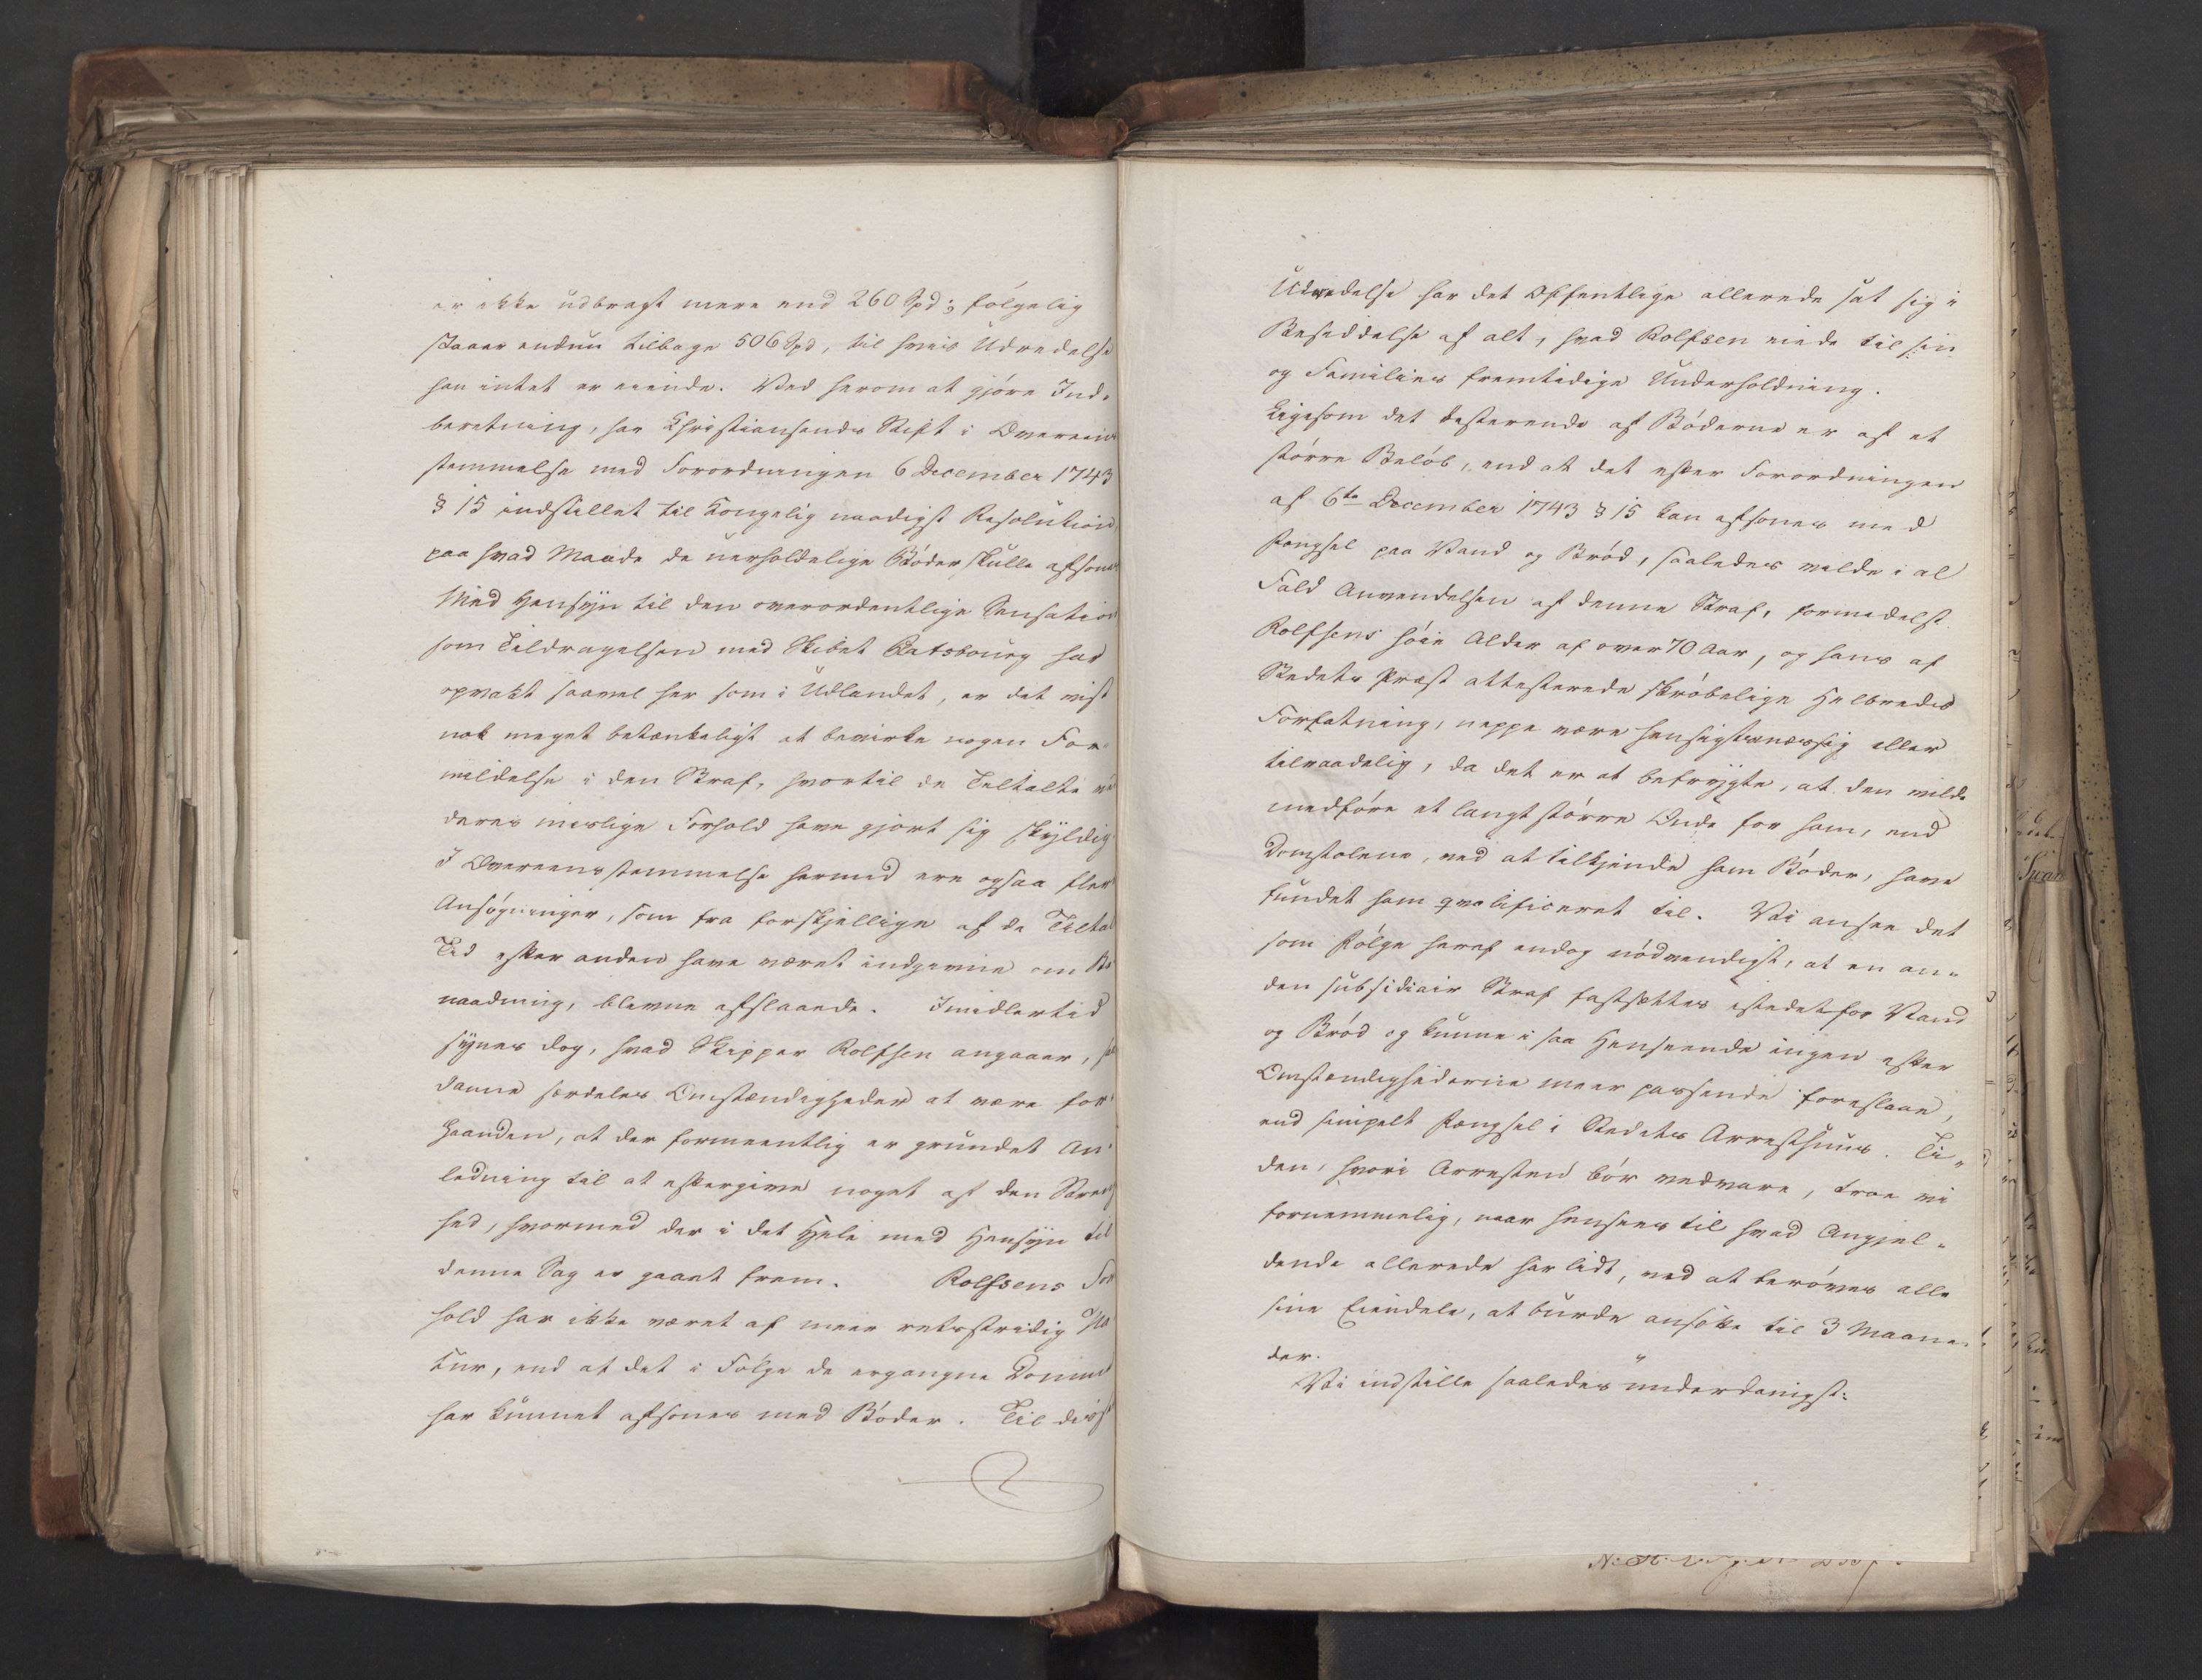 er ikke udbragt mere end 260 Spd; følgelig
staaer endnu tilbage 506 Spd, til hvis Udredelse
han intet er eiende. Ved herom at gjøre Ind-
beretning, har Christiansands Stift i Overeens
stemmelse med Forordningen 6 December 1743
§ 15 indstillet til Kongelig naadigst Resolution,
paa hvad Maade de uerholdelige Bøder skulle afsones
Med Hensyn til den overordentlige Sensation
som Tildragelsen med Skibet Ratsbourg har
opvakt saavel her som i Udlandet, er det vist
nok meget betænkeligt at bevirke nogen For-
mildelse i den Straf, hvortil de Tiltalte ved
deres uværdige Forhold have gjort sig skyldig
I Overeensstemmelse hermed ere ogsaa flere
Ansøgninger, som fra forskjellige af de Tiltal
Tid efter anden have været indgivne om Be
naadning, blevne afslaaede. Imidlertid
synes dog, hvad Skipper Rolfsen angaaer, saa
danne særdeles Omstændigheder at være for
haanden, at der formeentlig er grundet An-
ledning til at eftergive noget af den Streng
hed, hvormed der i det Hele med Hensyn til
denne Sag er gaaet frem. Rolfsens For
hold har ikke været af meer retsstridig Na
tur, end at det i Følge de ergangne Domme
har kunnet afsones med Bøder. Til disses
Udredelse har det Offentlige allerede sat sig i
Besiddelse af alt, hvad Rolfsen eiede til sin
og Families fremtidige Underholdning.
Ligesom det resterende af Bøderne er af et
større Beløb, end at det efter Forordningen
af 6te December 1743 § 15 kan afsones med
Fængsel paa Vand og Brød, saaledes vilde i al
Fald Anvendelsen af denne Straf, formedelst
Rolfsens høie Alder af over 70 Aar, og hans af
Stedets Præst attesterede skrøbelige Helbreds
Forfatning, neppe være hensigtsmæssig eller
tilraadelig, da det er at befrygte, at den vilde
medføre et langt større Onde for ham, end
Domstolene, ved at tilkjende ham Bøder, have
fundet ham qvalificeret til. Vi ansee det
som Følge heraf endog nødvendigt, at en an-
den subsidiair Straf fastsættes istedetfor Vand
og Brød og kunne i saa Henseende ingen efter
Omstændighederne meer passende foreslaae,
end simpelt Fængsel i Stedets Arresthuus. Ti-
den, hvori Arresten bør vedvare, troe vi
fornemmelig, naar hensees til hvad Angjel-
dende allerede har lidt, ved at berøves alle
sine Eiendele, at burde ansætte til 3 Maane-
der.
Vi indstille saaledes underdanigst: